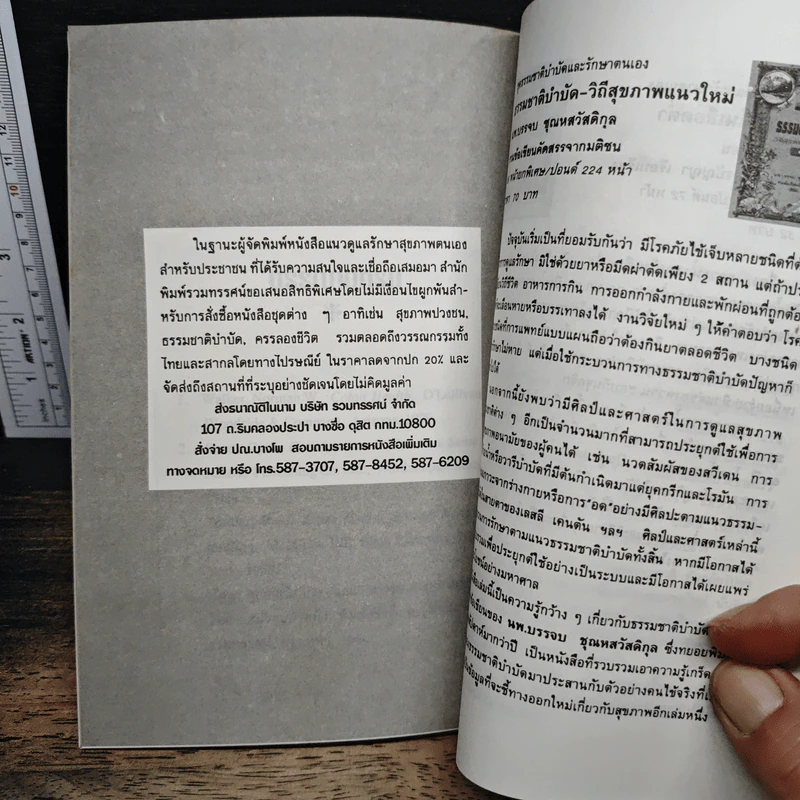 ในฐานะผู้จัดพิมพ์หนังสือแนวดูแลรักษาสุขภาพตนเอง
สำหรับประชาชน ที่ได้รับความสนใจและเชื่อถือเสมอมา สำนัก
พิมพ์รวมทรรศน์ขอเสนอสิทธิพิเศษโดยไม่มีเงื่อนไขผูกพันสำ-
หรับการสั่งซื้อหนังสือชุดต่าง ๆ อาทิเช่น สุขภาพปวงชน,
ธรรมชาติบำบัด, ครรลองชีวิต รวมตลอดถึงวรรณกรรมทั้ง
ไทยและสากลโดยทางไปรษณีย์ ในราคาลดจากปก 20% และ
จัดส่งถึงสถานที่ที่ระบุอย่างชัดเจนโดยไม่คิดมูลค่า
ส่งธนาณัติในนาม บริษัท รวมทรรศน์ จำกัด
107 ถ.ริมคลองประปา บางซื่อ ดุสิต กทม.10800
สั่งจ่าย ปณ.บางโพ สอบถามรายการหนังสือเพิ่มเติม
ทางจดหมาย หรือ โทร.587-3707, 587-8452, 587-6209
ธรรมชาติบำบัดและรักษาตนเอง
ธรรมชาติบำบัด-วิถีสุขภาพแนวใหม่
นพ.บรรจบ ชุณหสวัสดิกุล
ข้อเขียนคัดสรรจากมติชน
หน้ายกพิเศษ/ปอนด์ 224 หน้า
70 บาท
ปัจจุบันเริ่มเป็นที่ยอมรับกันว่า มีโรคภัยไข้เจ็บหลายชนิดที่
การดูแลรักษา มิใช่ด้วยยาหรือมีดผ่าตัดเพียง 2 สถาน แต่ถ้า
วิถีชีวิต อาหารการกิน การออกกำลังกายและพักผ่อนที่ถูกต้อง
หายหรือบรรเทาลงได้ งานวิจัยใหม่ ๆ ให้คำตอบว่า
ที่การแพทย์แบบแผนถือว่าต้องกินยาตลอดชีวิต บางชนิด
รักษาไม่หาย แต่เมื่อใช้กระบวนการทางธรรมชาติบำบัดปัญหาก็
ได้
นอกจากนี้ยังพบว่ามีศิลป์และศาสตร์ในการดูแลสุขภาพ
ต่าง ๆ อีกเป็นจำนวนมากที่สามารถประยุกต์ใช้เพื่อการ
สุขภาพอนามัยของผู้คนได้ เช่น นวดสัมผัสของสวีเดน การ
หรือวารีบำบัดที่มีต้นกำเนิดมาแต่ยุคกรีกและโรมัน การ
จากร่างกายหรือการ"อด"อย่างมีศิลปะตามแนวธรรม-
สายตาของเลสลี เคนตัน ฯลฯ ศิลป์และศาสตร์เหล่านี้
การรักษาตามแนวธรรมชาติบำบัดทั้งสิ้น หากมีโอกาสได้
เพื่อประยุกต์ใช้อย่างเป็นระบบและมีโอกาสได้เผยแพร่
อย่างมหาศาล
เล่มนี้เป็นความรู้กว้าง ๆ เกี่ยวกับธรรมชาติบำบัด
ข้อเขียนของ นพ.บรรจบ ชุณหสวัสดิกุล ซึ่งทยอย
มากว่าปี เป็นหนังสือที่รวบรวมเอาความรู้
ธรรมชาติบำบัดมาประสานกับตัวอย่างคนไข้จริง
ข้อมูลที่จะชี้ทางออกใหม่เกี่ยวกับสุขภาพอีกเล่มหนึ่ง